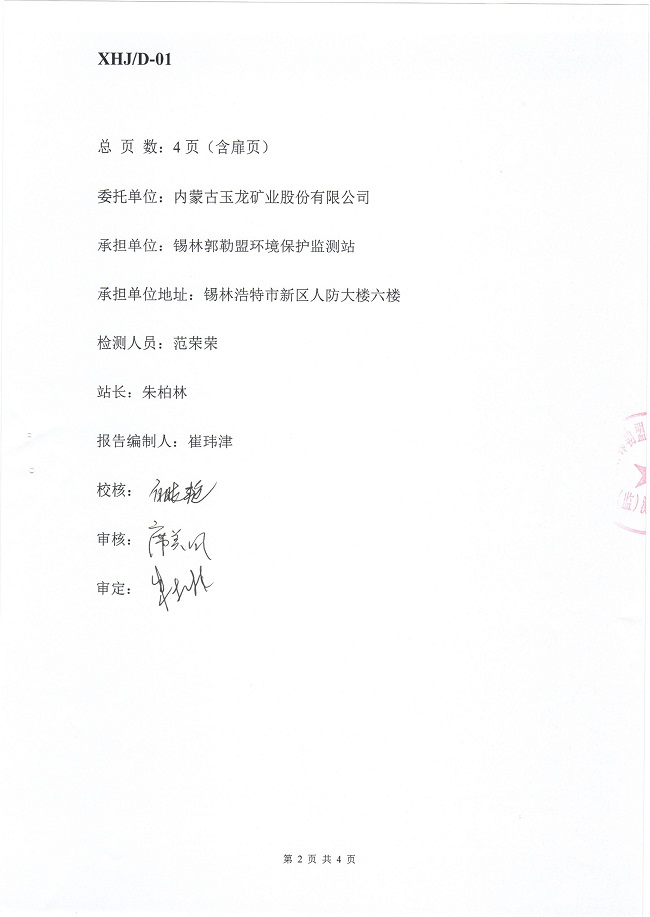 XHJ/D-01
总 页 数：4 页（含扉页）
委托单位：内蒙古玉龙矿业股份有限公司
承担单位：锡林郭勒盟环境保护监测站
承担单位地址：锡林浩特市新区人防大楼六楼
检测人员：范荣荣
站长：朱柏林
报告编制人：崔玮津
校核：
审核：
审定：
第 2 页 共 4 页